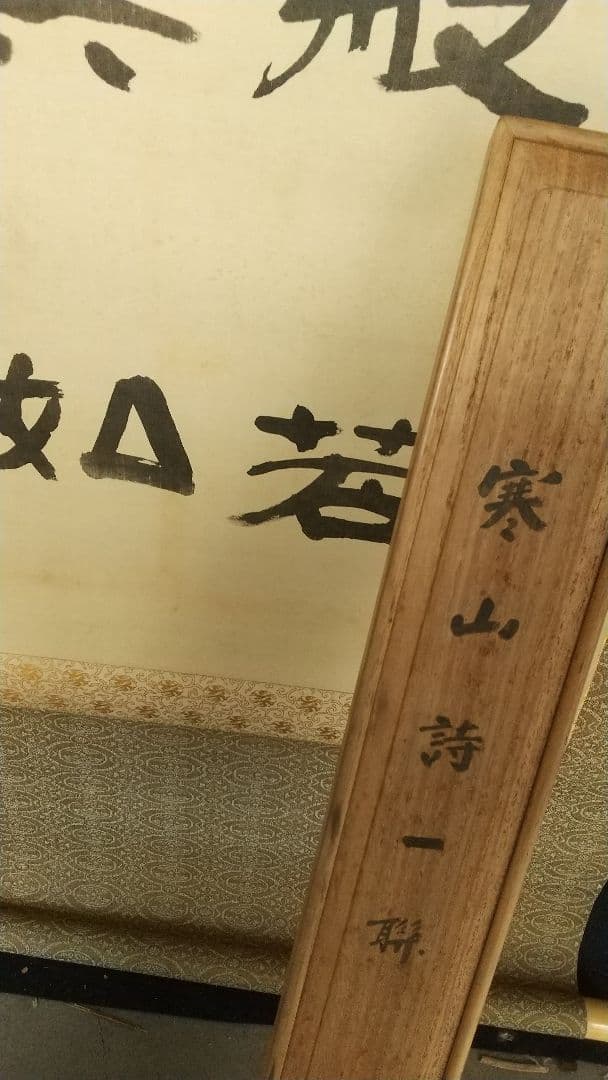 寒山詩一聯
般若
如